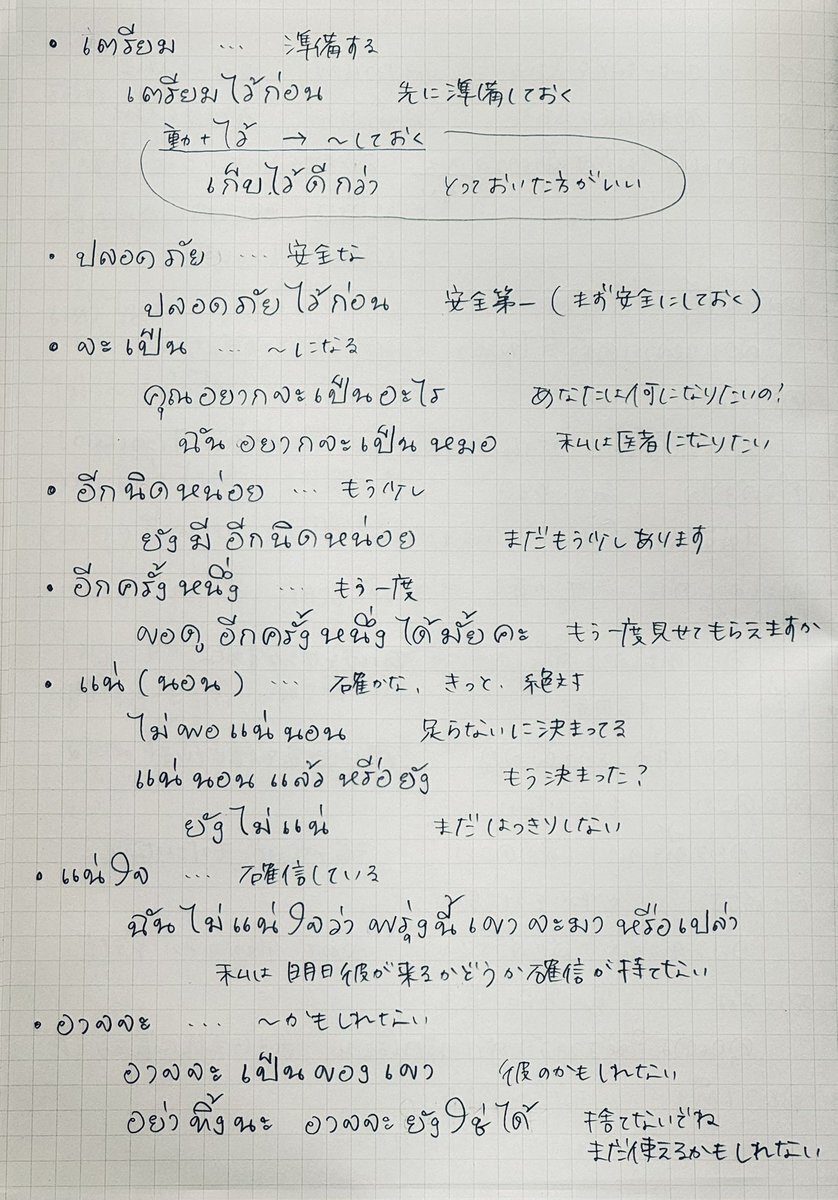 • เตรียม … 準備する
เตรียมไว้ก่อน 先に準備しておく
動+ไว้ → ~しておく
เก็บไว้ดีกว่า とっておいた方がいい
• ปลอดภัย … 安全な
ปลอดภัยไว้ก่อน 安全第一(まず安全にしておく)
• จะเป็น … ~になる
คุณอยากจะเป็นอะไร あなたは何になりたいの?
ฉันอยากจะเป็นหมอ 私は医者になりたい
• อีกนิดหน่อย … もう少し
ยังมีอีกนิดหน่อย まだもう少しあります
• อีกครั้งหนึ่ง … もう一度
ขอดูอีกครั้งหนึ่งได้มั้ยคะ もう一度見せてもらえますか
• แน่(นอน) … 確かな、きっと、絶対
ไม่พอแน่นอน 足らないに決まってる
แน่นอนแล้วหรือยัง もう決まった?
ยังไม่แน่ まだはっきりしない
• แน่ใจ … 確信している
ฉันไม่แน่ใจว่า พรุ่งนี้ เขาจะมา หรือเปล่า
私は明日彼が来るかどうか確信が持てない
• อาจจะ … ~かもしれない
อาจจะ เป็นของ เขา 彼のかもしれない
อย่าทิ้งนะ อาจจะยังใช้ได้ 捨てないでね
まだ使えるかもしれない